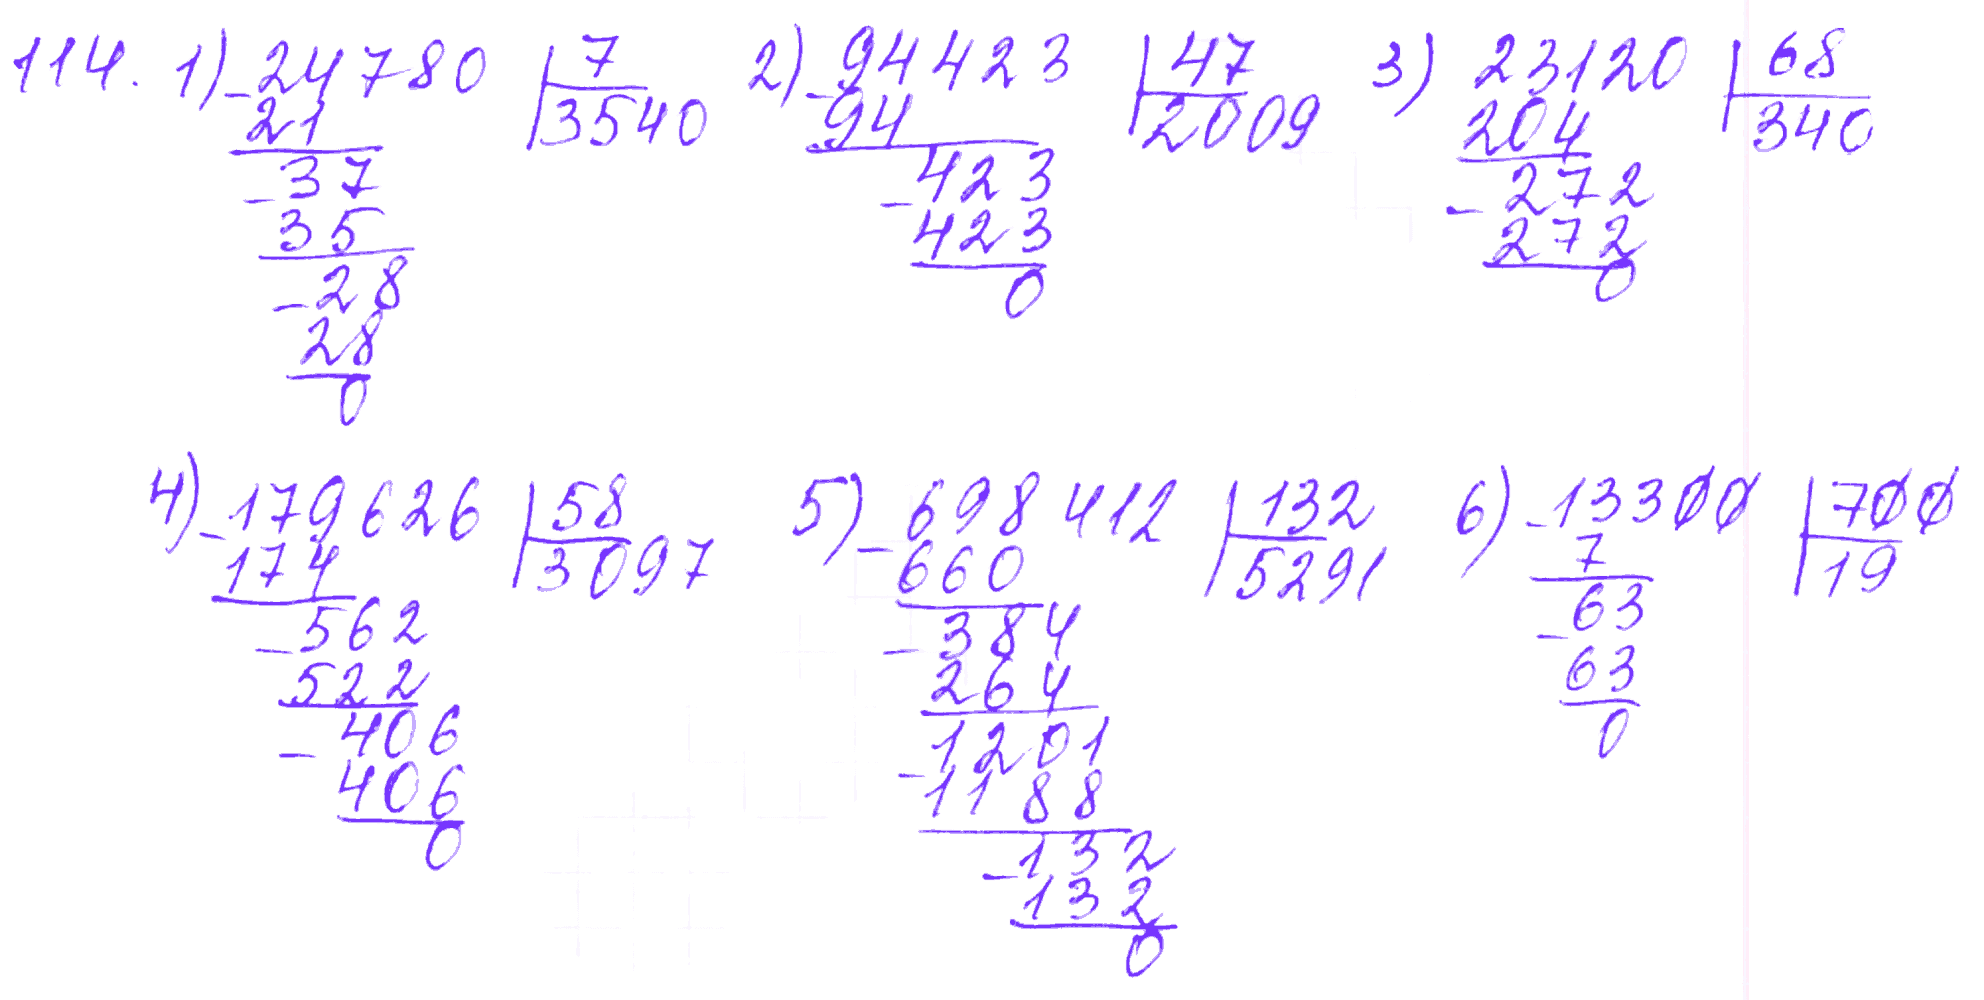 114. 1) -24780 | 7 2) -94423 | 47 3) 23120 | 68
21 | 3540 94 | 2009 204 | 340
-37 -423 -272
35 423 272
-28 0 0
28
0
4) -179626 | 58 5) -698412 | 132 6) -13300 | 700
174 | 3097 660 | 5291 7 | 19
-562 -384 -63
522 264 63
-406 -1201 0
406 1188
0 -132
132
0